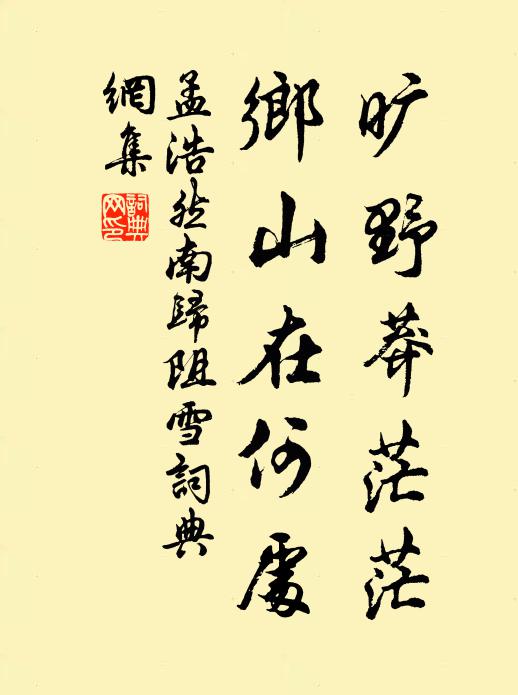 旷野莽茫茫
鄉山在何處
孟浩然南歸阻雪詞典
網集
詞典网印